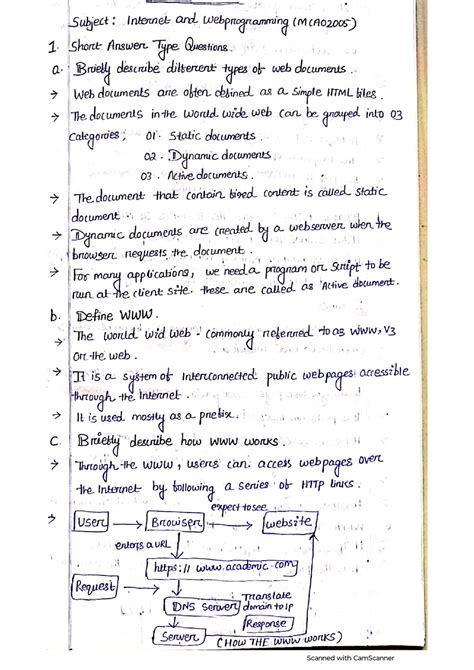 Subject: Internet and Webprogramming (MCA02005)
1. Short Answer Type Questions.
a. Briefly describe different types of web documents.
→ Web documents are often defined as a simple HTML files.
→ The documents in the world wide web can be grouped into 03
Categories; 01. Static documents.
02. Dynamic documents
03. Active documents.
→ The document that contain fixed content is called static
document.
→ Dynamic documents are created by a webserver when the
browser requests the document.
→ For many applications, we need a program or script to be
run at the client site. these are called as Active document.
b. Define WWW.
→ The world wid web - commonly referred to as WWW, V3
or the web.
→ It is a system of interconnected public webpages accessible
through the Internet.
→ It is used mostly as a prefix.
C. Briefly describe how WWW works.
→ Through the WWW, users can access webpages over
the Internet by following a series of HTTP links.
expect to see
→ User → Browser → website
enters a URL
https:// www.academic.com
Request
DNS Server Translate
domain to Ip
Response
Server (HOW THE WWW WORKS)
Scanned with CamScanner